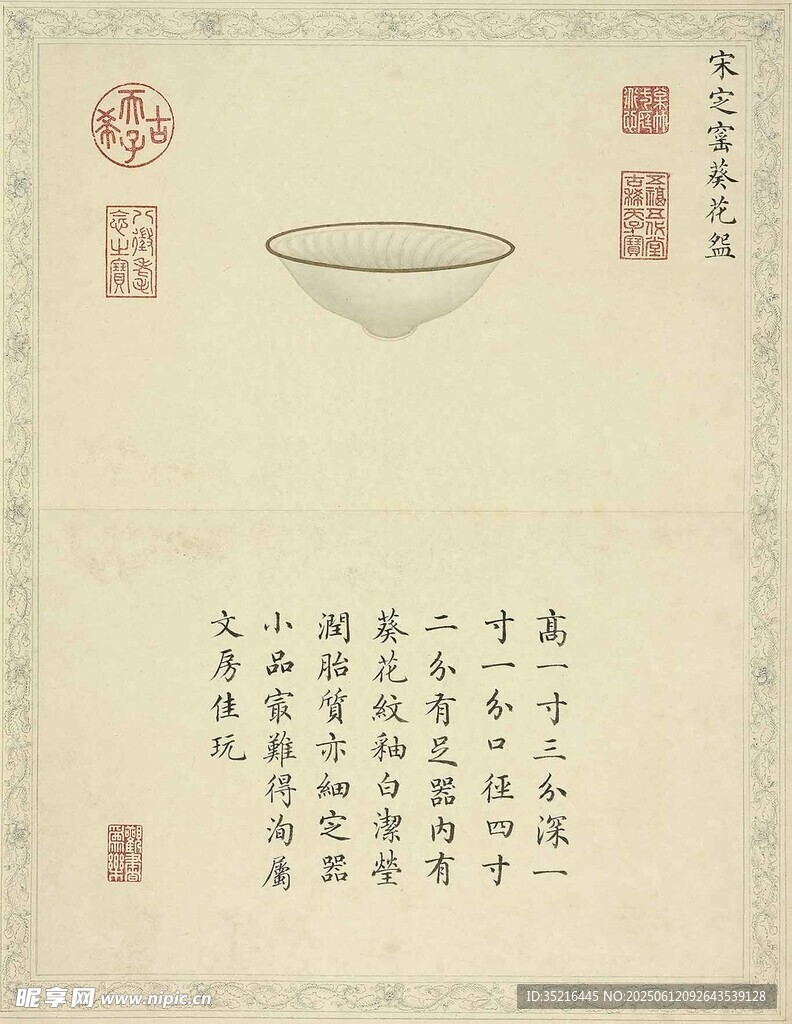 宋㝎窰葵花盌
古希天子
八徵耄念之寶
五福五代堂古稀天子寶
髙一寸三分深一
寸一分口徑四寸
二分有足器内有
葵花紋釉白潔瑩
潤胎質亦細㝎器
小品㝡難得洵屬
文房佳玩
觀書為樂
昵享网 www.nipic.cn
ID:35216445 NO:20250612092643539128